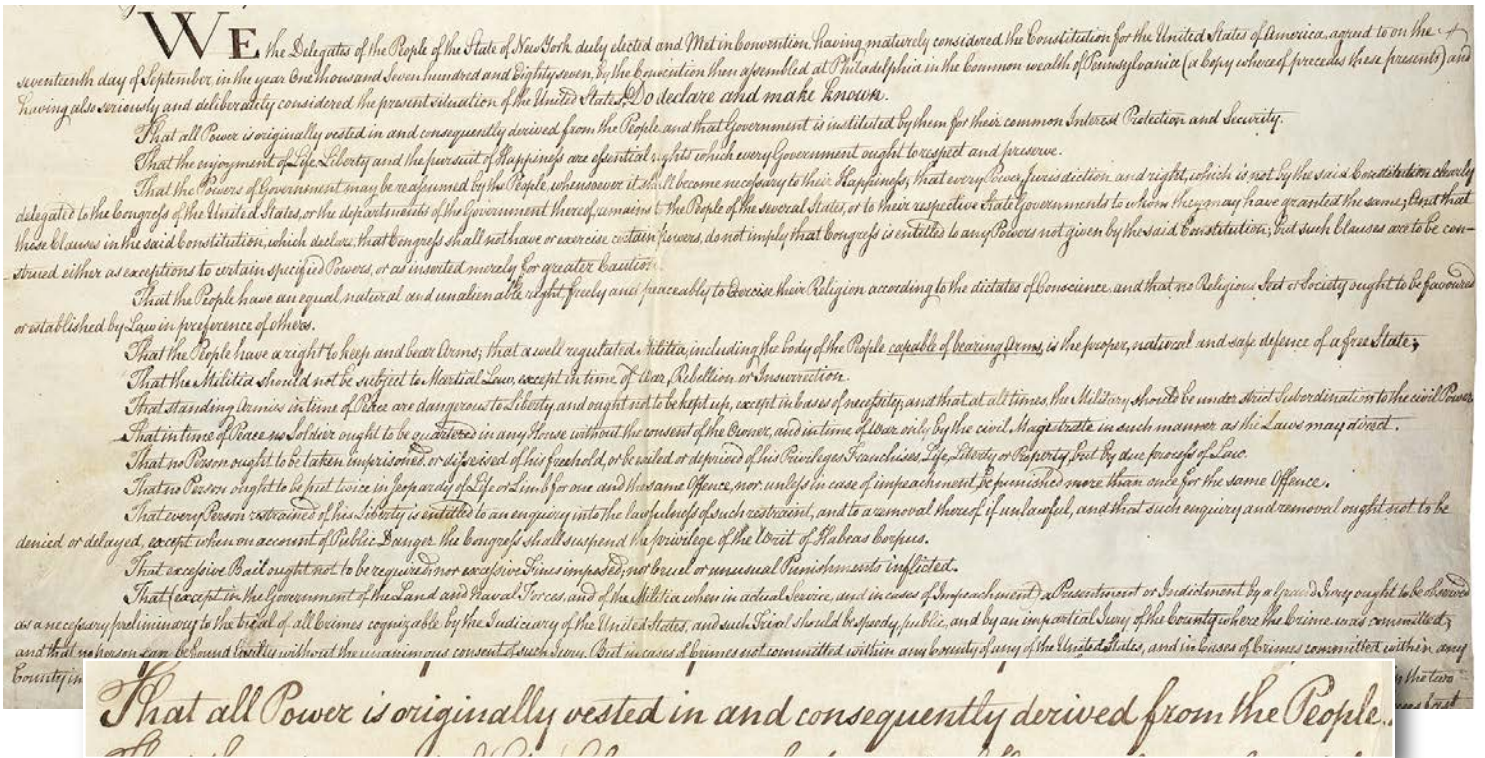 WE the Delegates of the People of the State of New York duly elected and Met in Convention, having maturely considered the Constitution for the United States of America, agreed to on the
seventeenth day of September, in the year One thousand Seven hundred and Eighty seven, by the Convention then assembled at Philadelphia in the Common wealth of Pennsylvania (a Copy whereof precedes these presents) and
having also seriously and deliberately considered the present situation of the United States, Do declare and make known.
That all Power is originally vested in and consequently derived from the People, and that Government is instituted by them for their common Interest Protection and Security.
That the enjoyment of Life, Liberty and the pursuit of Happiness are essential rights which every Government ought to respect and preserve.
That the Powers of Government may be reassumed by the People, whensoever it shall become necessary to their Happiness; that every Power, Jurisdiction and right, which is not by the said Constitution clearly
delegated to the Congress of the United States, or the departments of the Government thereof, remains to the People of the several States, or to their respective State Governments to whom they may have granted the same; And that
those Clauses in the said Constitution, which declare, that Congress shall not have or exercise certain Powers, do not imply that Congress is entitled to any Powers not given by the said Constitution; but such Clauses are to be con-
strued either as exceptions to certain specified Powers, or as inserted merely for greater Caution.
That the People have an equal, natural and unalienable right, freely and peaceably to Exercise their Religion according to the dictates of Conscience, and that no Religious Sect or Society ought to be favoured
or established by Law in preference of others.
That the People have a right to keep and bear Arms; that a well regulated Militia, including the body of the People capable of bearing Arms, is the proper, natural and safe defence of a free State;
That the Militia should not be subject to Martial Law, except in time of War, Rebellion or Insurrection.
That standing Armies in time of Peace are dangerous to Liberty, and ought not to be kept up, except in Cases of necessity; and that at all times, the Military should be under strict Subordination to the civil Power.
That in time of Peace no Soldier ought to be quartered in any House without the consent of the Owner, and in time of War only by the civil Magistrate in such manner as the Laws may direct.
That no Person ought to be taken imprisoned, or disseised of his freehold, or be exiled or deprived of his Privileges, Franchises, Life, Liberty or Property, but by due process of Law.
That no Person ought to be put twice in Jeopardy of Life or Limb for one and the same Offence, nor, unless in case of impeachment, be punished more than once for the same Offence.
That every Person restrained of his Liberty is entitled to an enquiry into the lawfulness of such restraint, and to a removal thereof if unlawful, and that such enquiry and removal ought not to be
denied or delayed, except when on account of Public Danger the Congress shall suspend the privilege of the Writ of Habeas Corpus.
That excessive Bail ought not to be required; nor excessive Fines imposed; nor Cruel or unusual Punishments inflicted.
That (except in the Government of the Land and Naval Forces, and of the Militia when in actual Service, and in cases of Impeachment) a Presentment or Indictment by a Grand Jury ought to be observed
as a necessary preliminary to the trial of all Crimes cognizable by the Judiciary of the United States, and such Trial should be speedy, public, and by an impartial Jury of the County where the Crime was committed;
and that no person can be found Guilty without the unanimous consent of such Jury. But in cases of Crimes not committed within any County of any of the United States, and in Cases of Crimes committed within any
County in
the two
That all Power is originally vested in and consequently derived from the People.